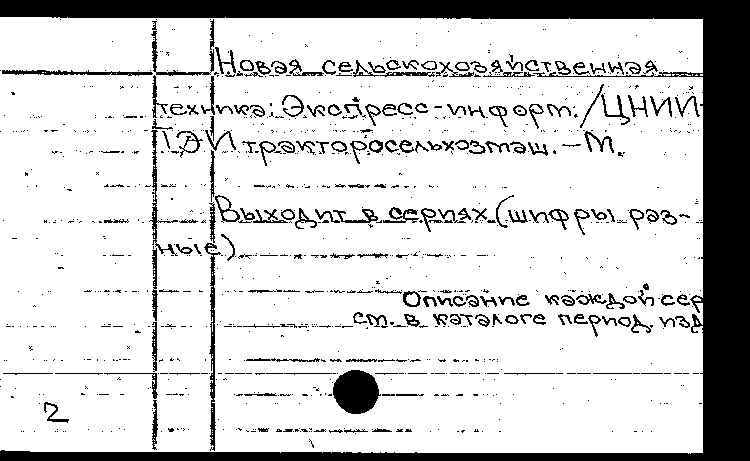 Новая сельскохозяйственная
техника: Экспресс-информ. /ЦНИИ-
ТЭИтракторосельхозмаш. – М.
Выходит в сериях (шифры раз-
ные)
Описание каждой сер
см. в каталоге период. изд
2